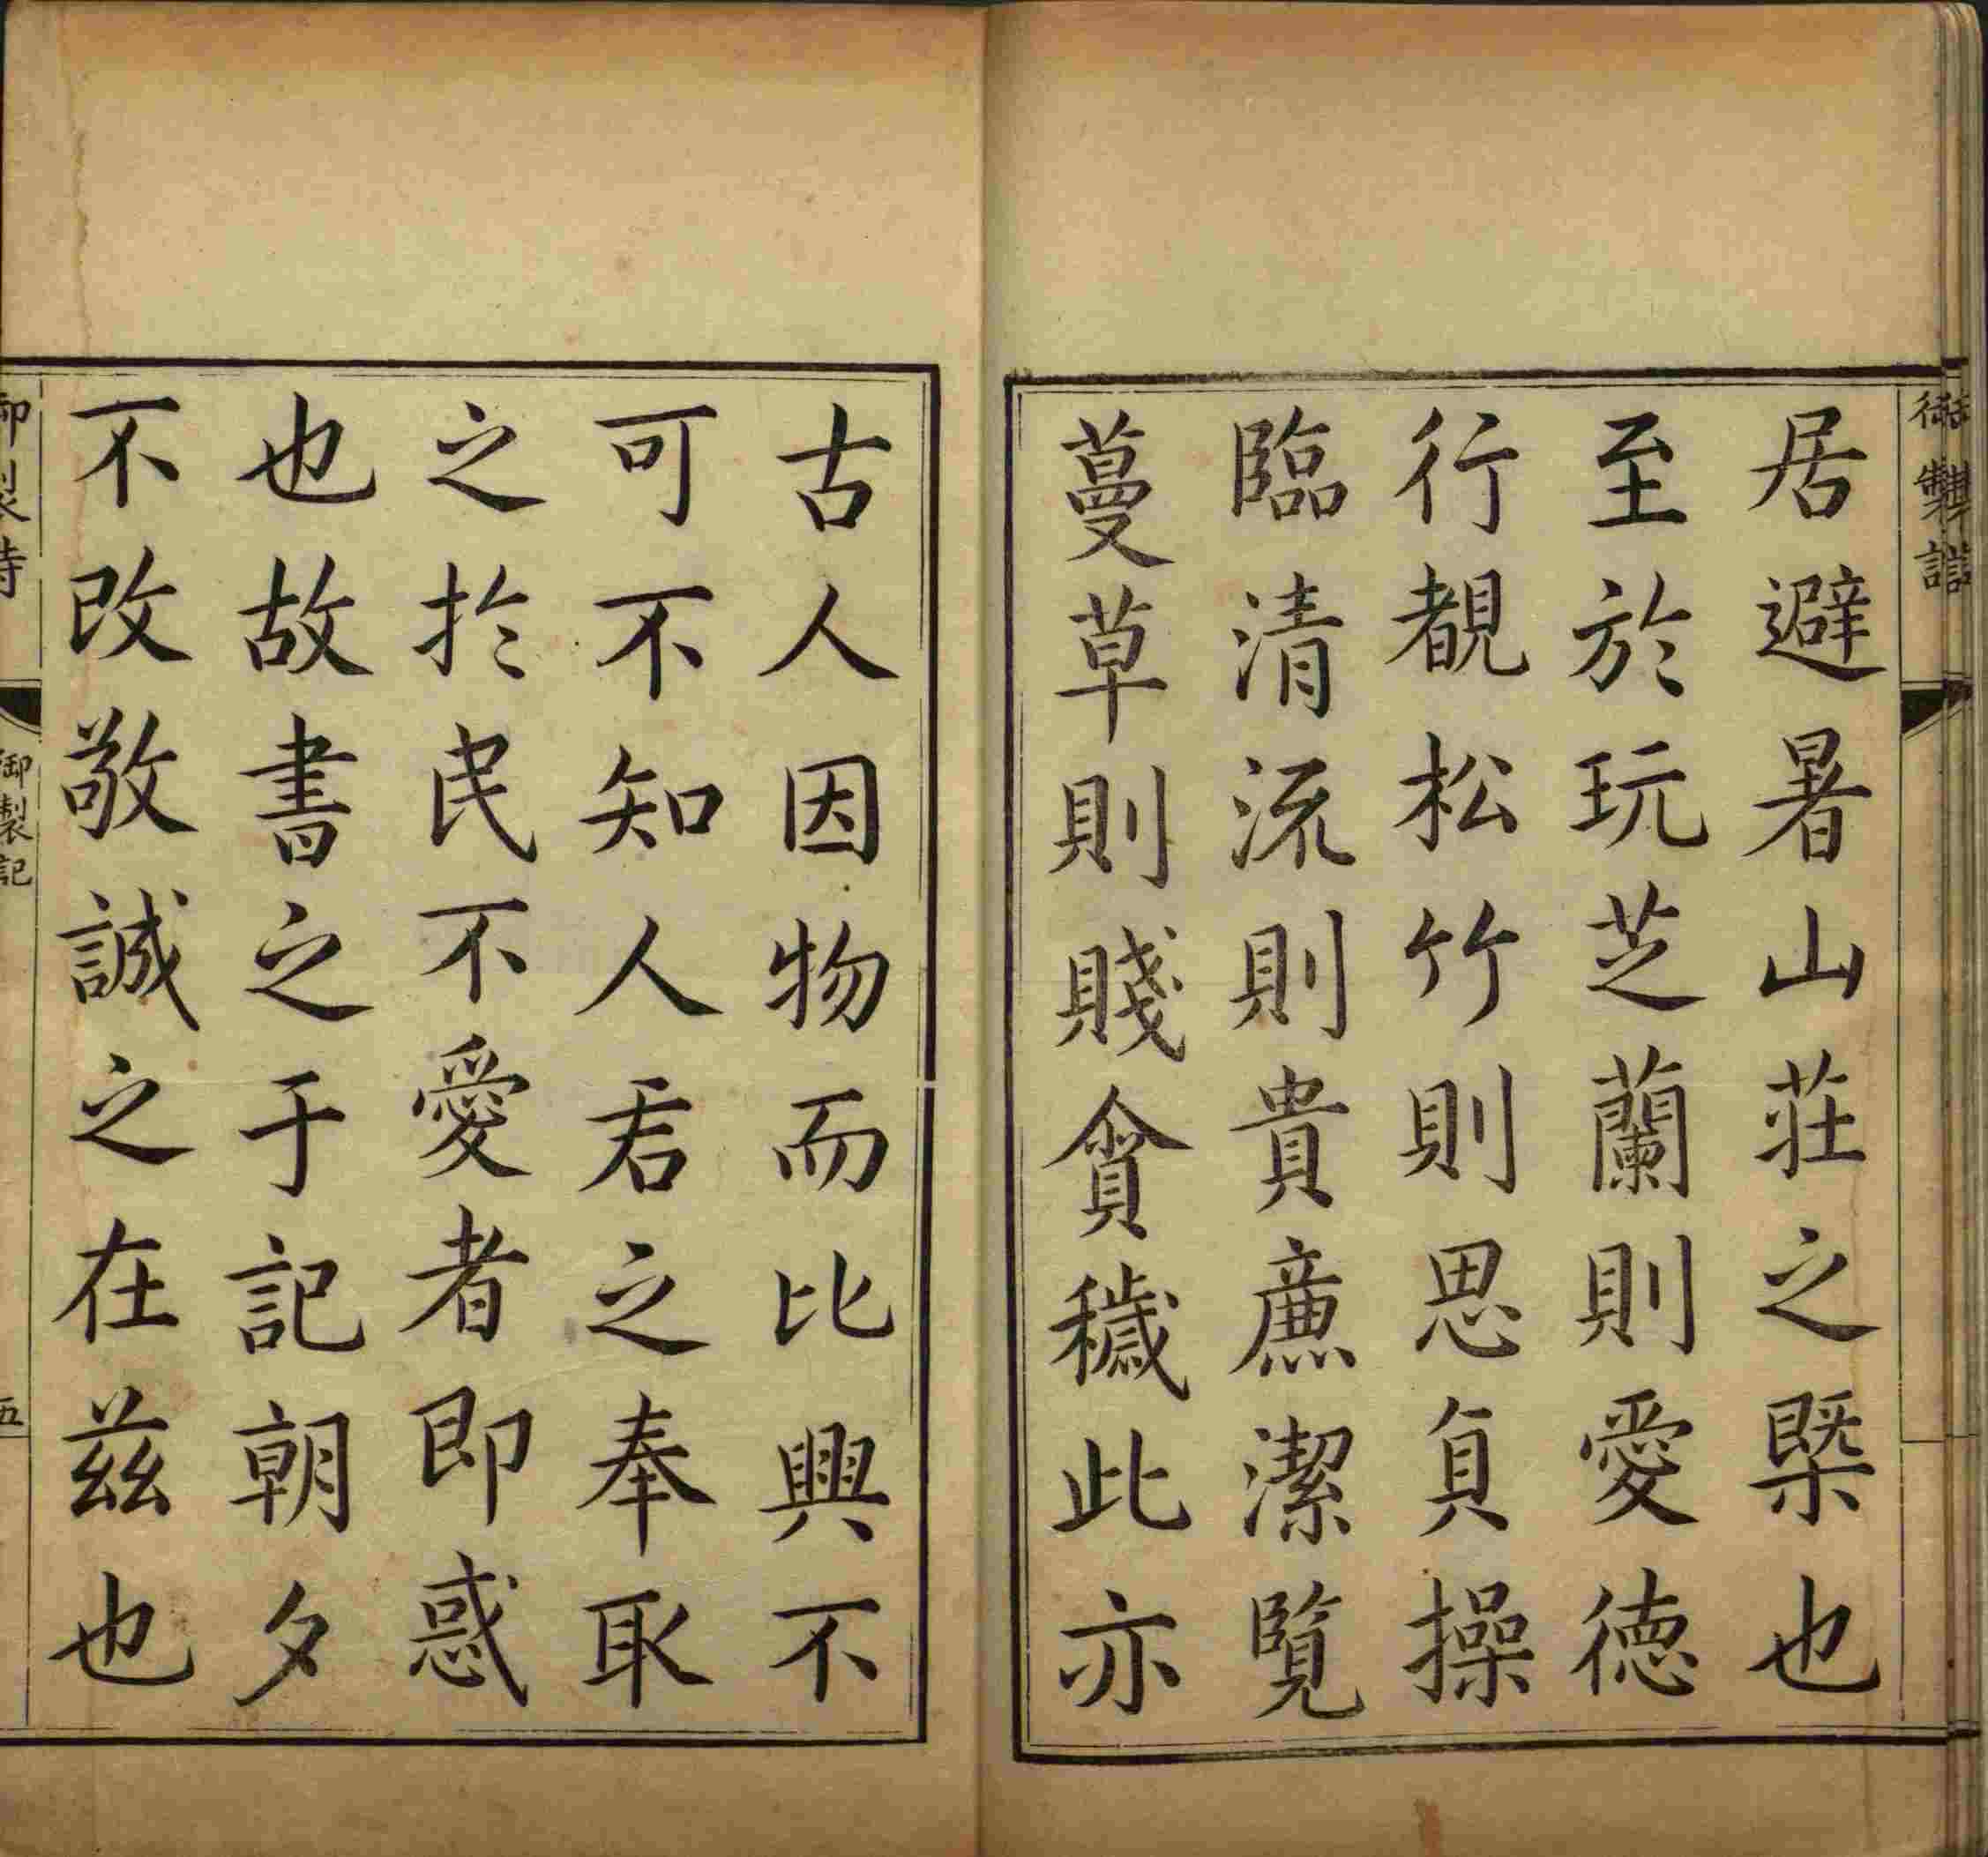 御製詩
居避暑山莊之槩也
至於玩芝蘭則愛徳
行覩松竹則思貞操
臨清流則貴廉潔覧
蔓草則賤貪穢此亦
古人因物而比興不
可不知人君之奉取
之扵民不愛者即惑
也故書之于記朝夕
不改敬誠之在茲也
御製詩
御製記
五